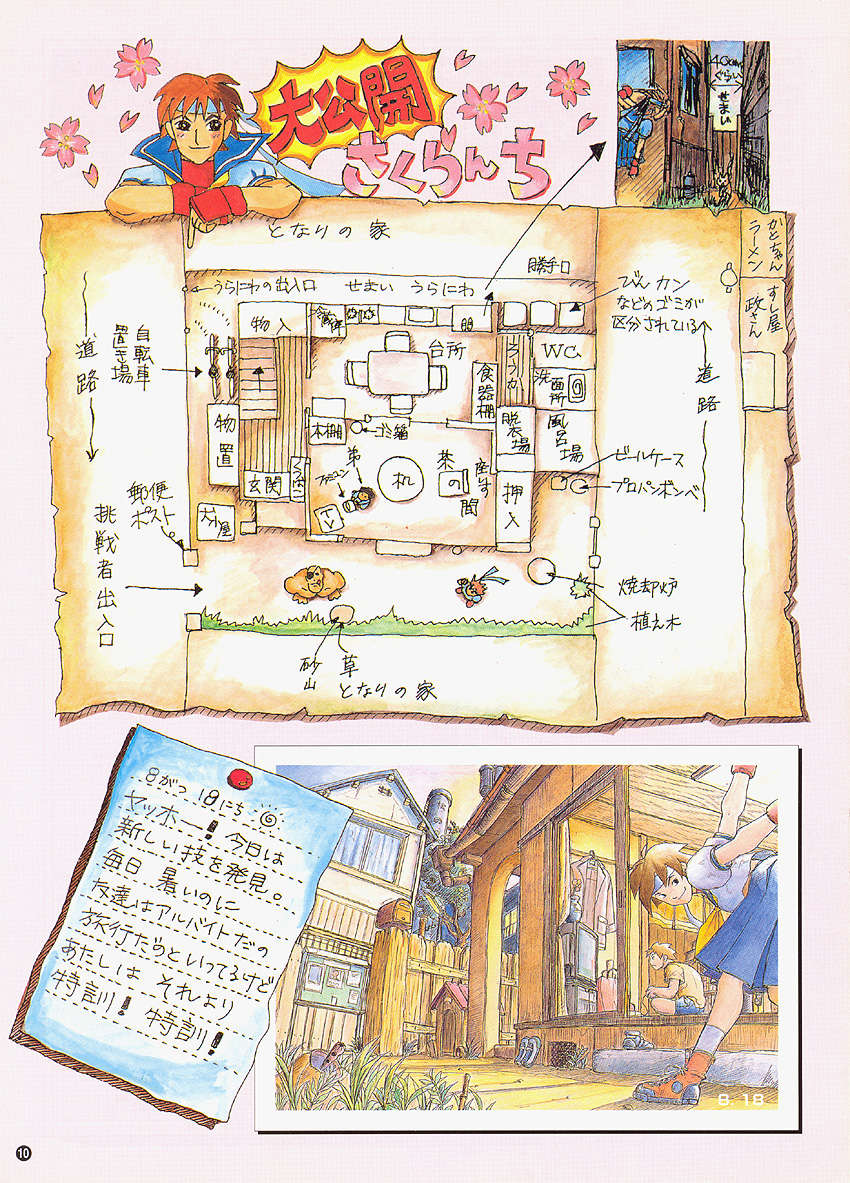 大公開
さくらんち
40cm
ぐらい
せまい
となりの家
勝手口
うらにわの出入口
せまい
うらにわ
びん カン
などのゴミが
区分されている
かとちゃん
ラーメン
すし屋
政さん
道路
自転車
置き場
物入
冷蔵庫
台所
食器棚
ろうか
WC
洗面所
道路
物置
本棚
ゴミ箱
脱衣場
風呂場
ビールケース
プロパンボンベ
玄関
弟
ファミコン
TV
机
茶の間
座イす
押入
郵便
ポスト
犬小屋
挑戦者出入口
焼却炉
植え木
砂山
草
となりの家
8がつ 18にち
ヤッホー! 今日は
新しい技を発見。
毎日 暑いのに
友達はアルバイトだの
旅行だのといってるけど
あたしは それより
特訓! 特訓!
8.18
10